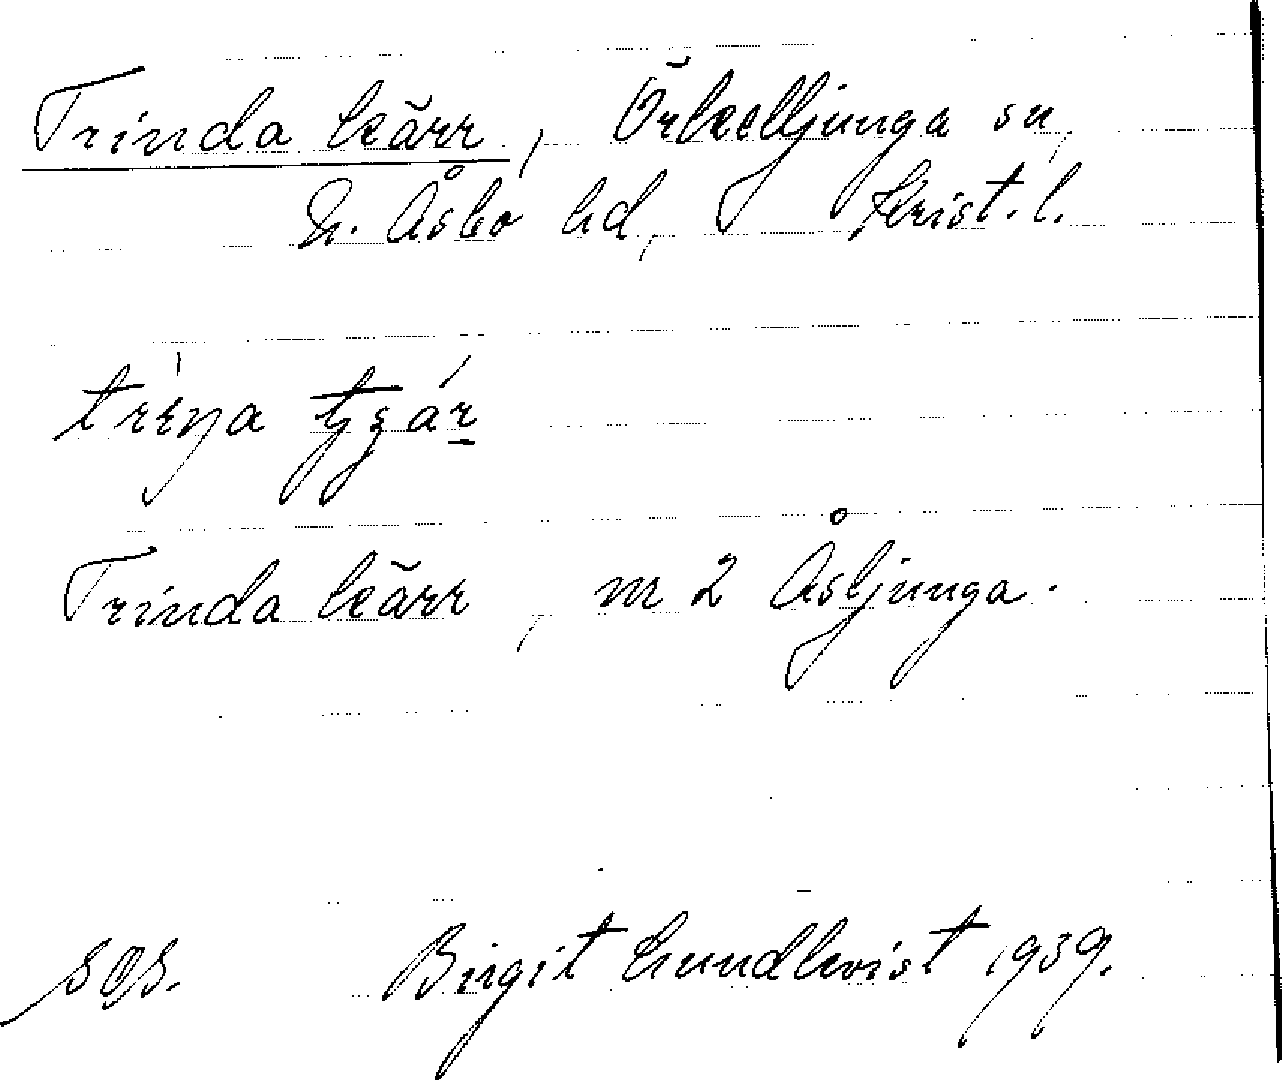 Trinda kärr, Örkelljunga sn,
N. Åsbo hd, Krist. l.
Trinda kärr, nr 2 Åsljunga.
Birgit Lundkvist 1939.